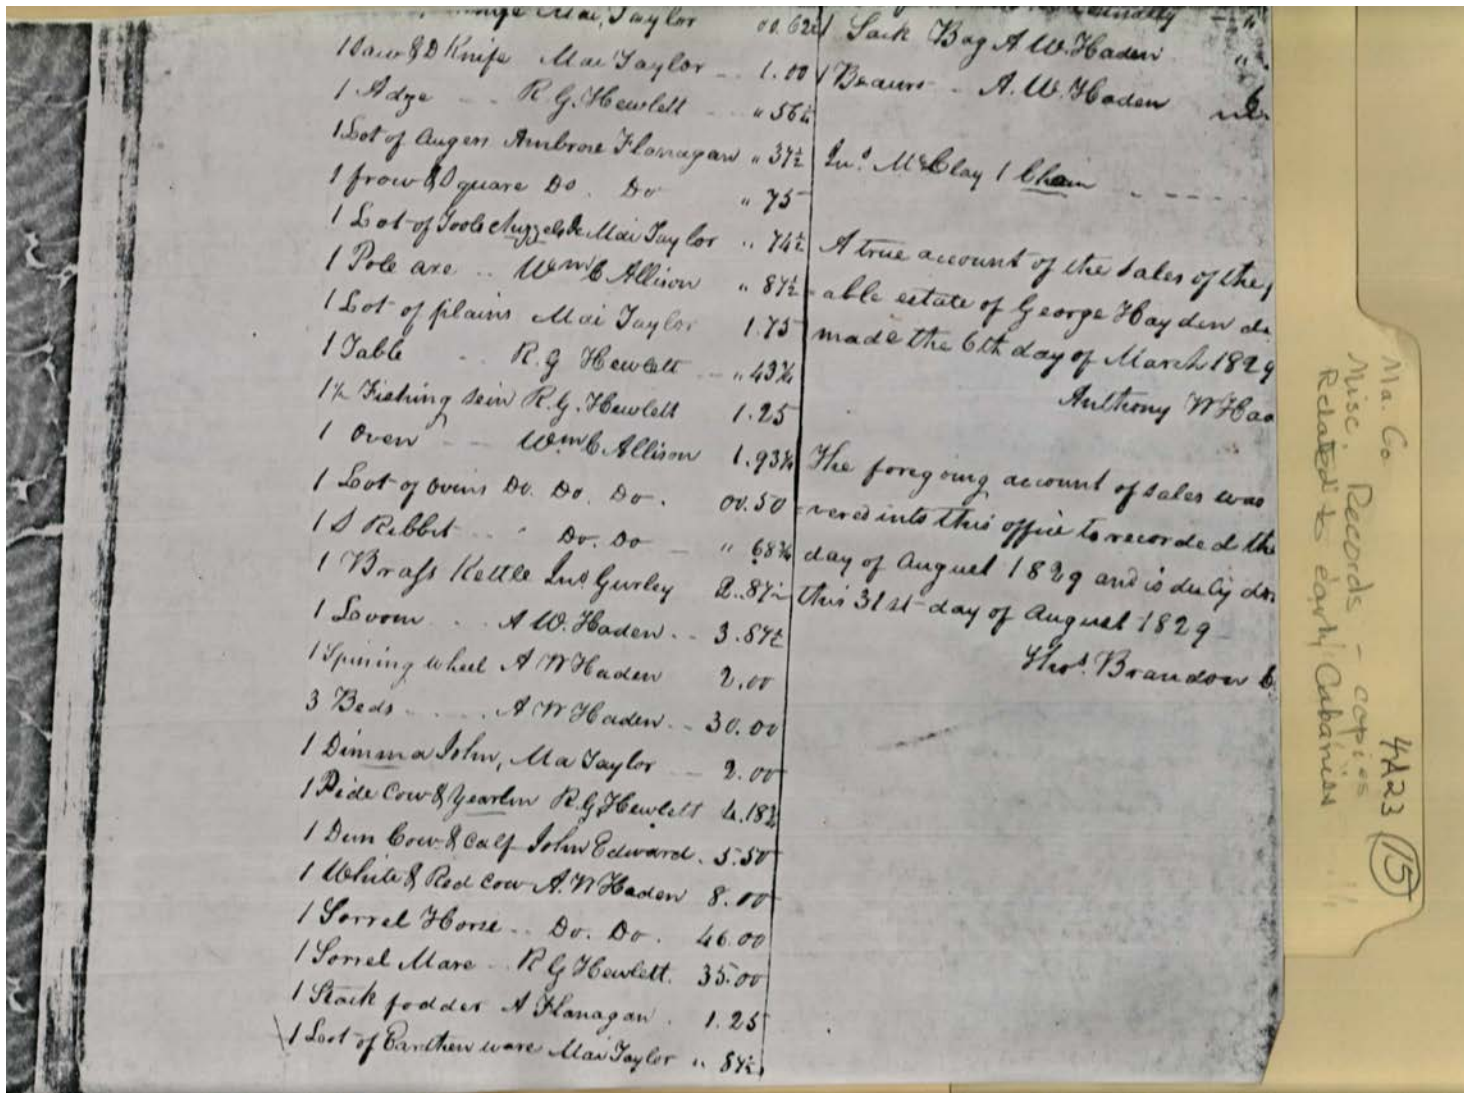 Mai, Taylor 00.62½
1 Saw & D Knife Mai Taylor 1.00
1 Adze R G. Hewlett " 56¼
1 Lot of Augers Ambrose Flanagan " 37½
1 frow & Square Do. Do " 75
1 Lot of Tools chizzels &c Mai Taylor " 74½
1 Pole axe .. Wm C Allison " 87½
1 Lot of plains Mai Taylor 1.75
1 Table R. G Hewlett " 43¾
1 Fishing sein R. G. Hewlett 1.25
1 Oven Wm C Allison 1.93¾
1 Lot of ovens Do. Do. Do. 00.50
1 S Kebbit Do. Do " 68¾
1 Brass Kettle Jno Gurley 2.87½
1 Loom A W. Haden 3.87½
1 Spining wheel A W Haden 2.00
3 Beds A W Haden 30.00
1 Dimma John, Ma Taylor 2.00
1 Pide Cow & Yearlin R. G Hewlett 4.18¾
1 Dun Cow & Calf John Edward. 5.50
1 White & Red Cow A. W Haden 8.00
1 Sorrel Horse .. Do. Do. 46.00
1 Sorrel Mare R G Hewlett. 35.00
1 Stack fodder A Flanagan. 1.25
1 Lot of Earthen ware Mai Taylor " 87½
1 Sack Bag A W. Haden "
1 Beauro A. W. Haden
Jno. McClay 1 Chain
A true account of the Sales of the
able estate of George Hayden de
made the 6th day of March 1829
Anthony W Ha
The foregoing account of sales was
vered into this office to recorded the
day of August 1829 and is duly don
this 31st day of August 1829
Thos. Brandon C
Ma. Co. 4A23 (15)
Misc. Records - copies
Related to early Cabaniss